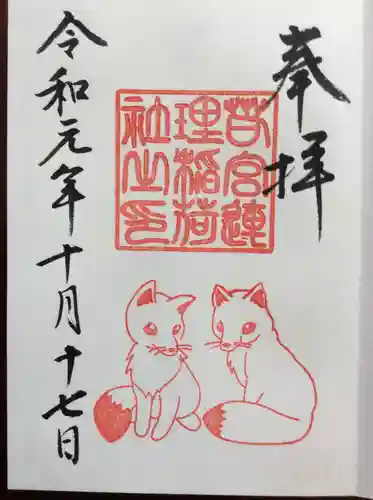 奉拝
若宮連
理稲荷
社之印
令和元年十月十七日